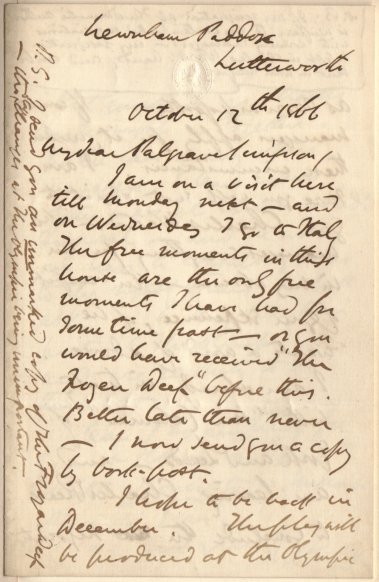 Newnham Paddox
Lutterworth
October 12th 1866
My dear Palgrave Simpson/
I am on a visit here
till Monday next – and
on Wednesday I go to Italy
The free moments in this
house are the only free
moments I have had for
some time past – or you
would have received "The
Frozen Deep" before this.
Better late than never
– I now send you a copy
by book-post.
I hope to be back in
December. The play will
be produced at the Olympic
P.S. I send you an unmarked copy of The Frozen Deep
– the changes at the Olympic being unimportant.